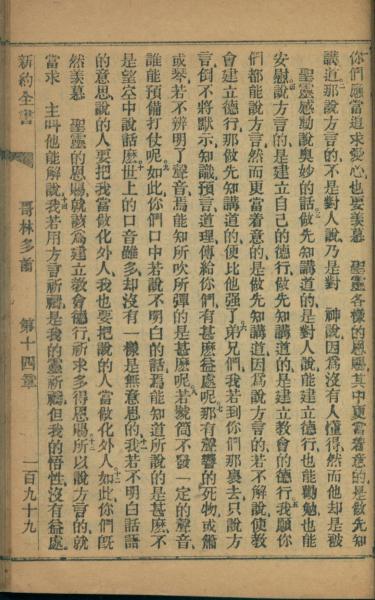 你們應當追求愛心也要羨慕　聖靈各樣的恩賜其中更當着意的是做先知
講道那說方言的不是對人說乃是對　神說因為沒有人懂得然而他却是被
聖靈感動說奧妙的話做先知講道的是對人說能建立德行也能勸勉也能
安慰說方言的是建立自己的德行做先知講道的是建立教會的德行我願你
們都能說方言然而更當着意的是做先知講道因為說方言的若不解說使教
會建立德行那做先知講道的便比他强了弟兄們我若到你們那裏去只說方
言倒不將默示知識預言道理傳給你們有甚麽益處呢那有聲響的死物或簫
或琴若不辨明了聲音焉能知所吹所彈的是甚麽呢若號筒不發一定的聲音
誰能預備打仗呢如此你們口中若說不明白的話焉能知道所說的是甚麽不
是望空中說話麽世上的口音雖多却沒有一樣是無意思的我若不明白話語
的意思說的人要把我當做化外人我也要把說的人當做化外人如此你們旣
然羨慕　聖靈的恩賜就該為建立教會德行祈求多得恩賜所以說方言的就
當求　主叫他能解說我若用方言祈禱是我的靈祈禱但我的悟性沒有益處
新約全書　哥林多前　第十四章　一百九十九